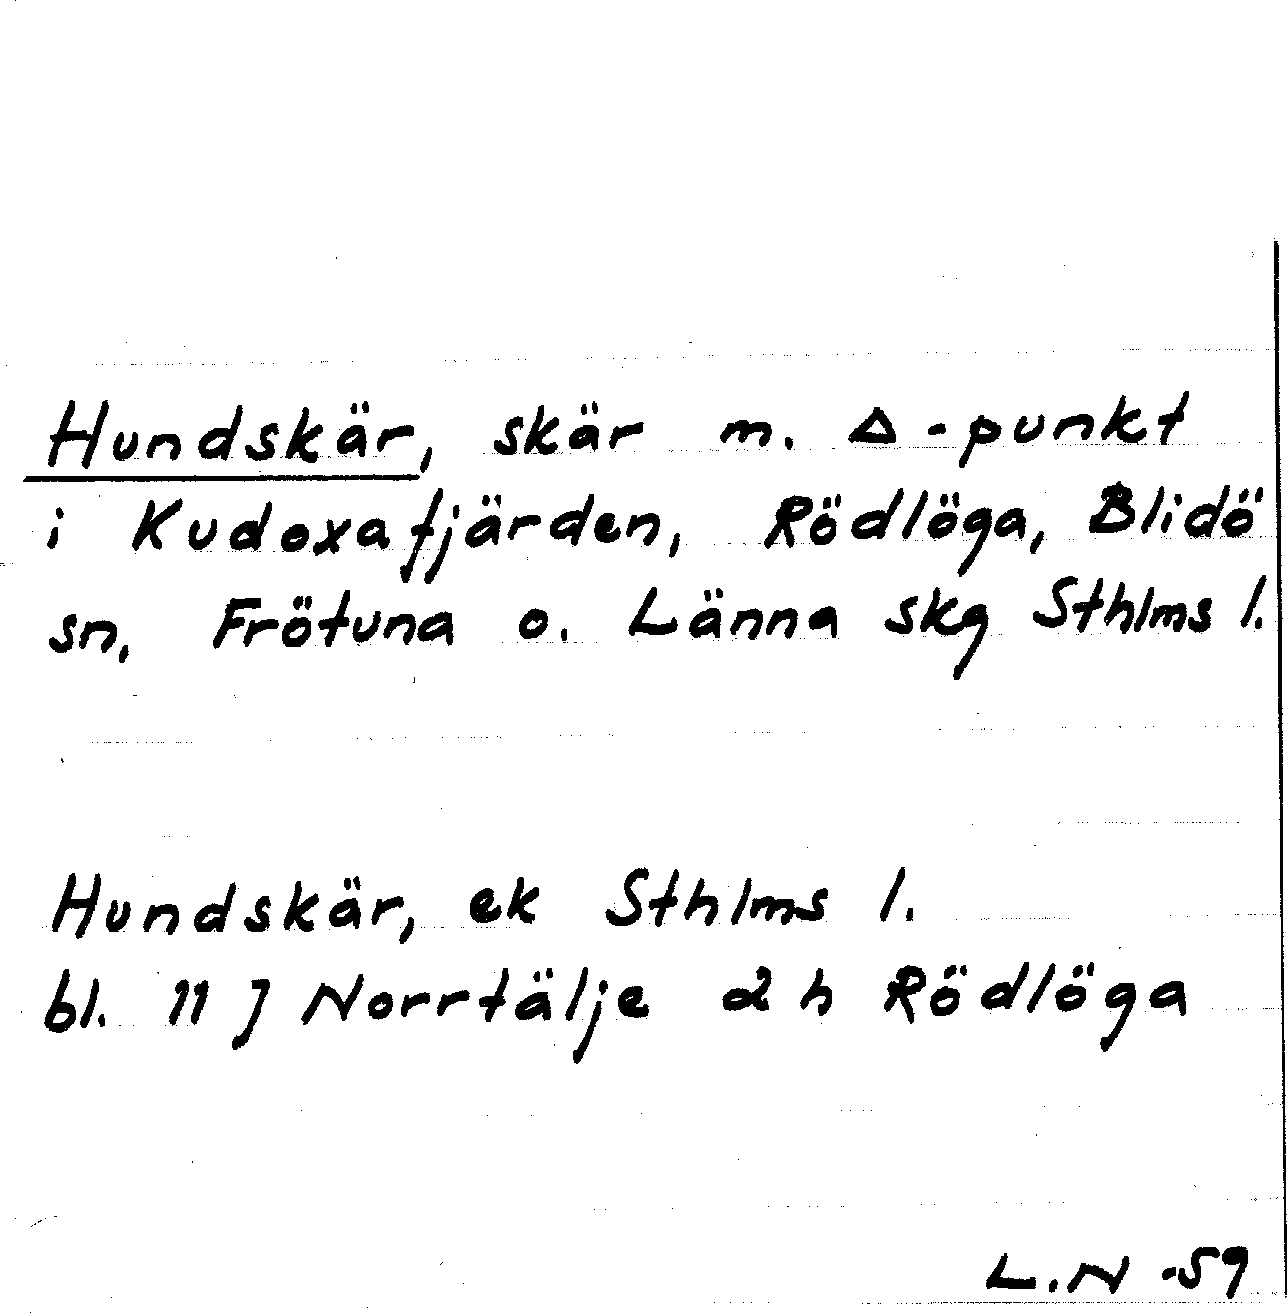 Hundskär, skär m. Δ-punkt
i Kudoxafjärden, Rödlöga, Blidö
sn, Frötuna o. Länna skg Sthlms l.
Hundskär, ek Sthlms l.
bl. 11 J Norrtälje 2 h Rödlöga
L.N -59